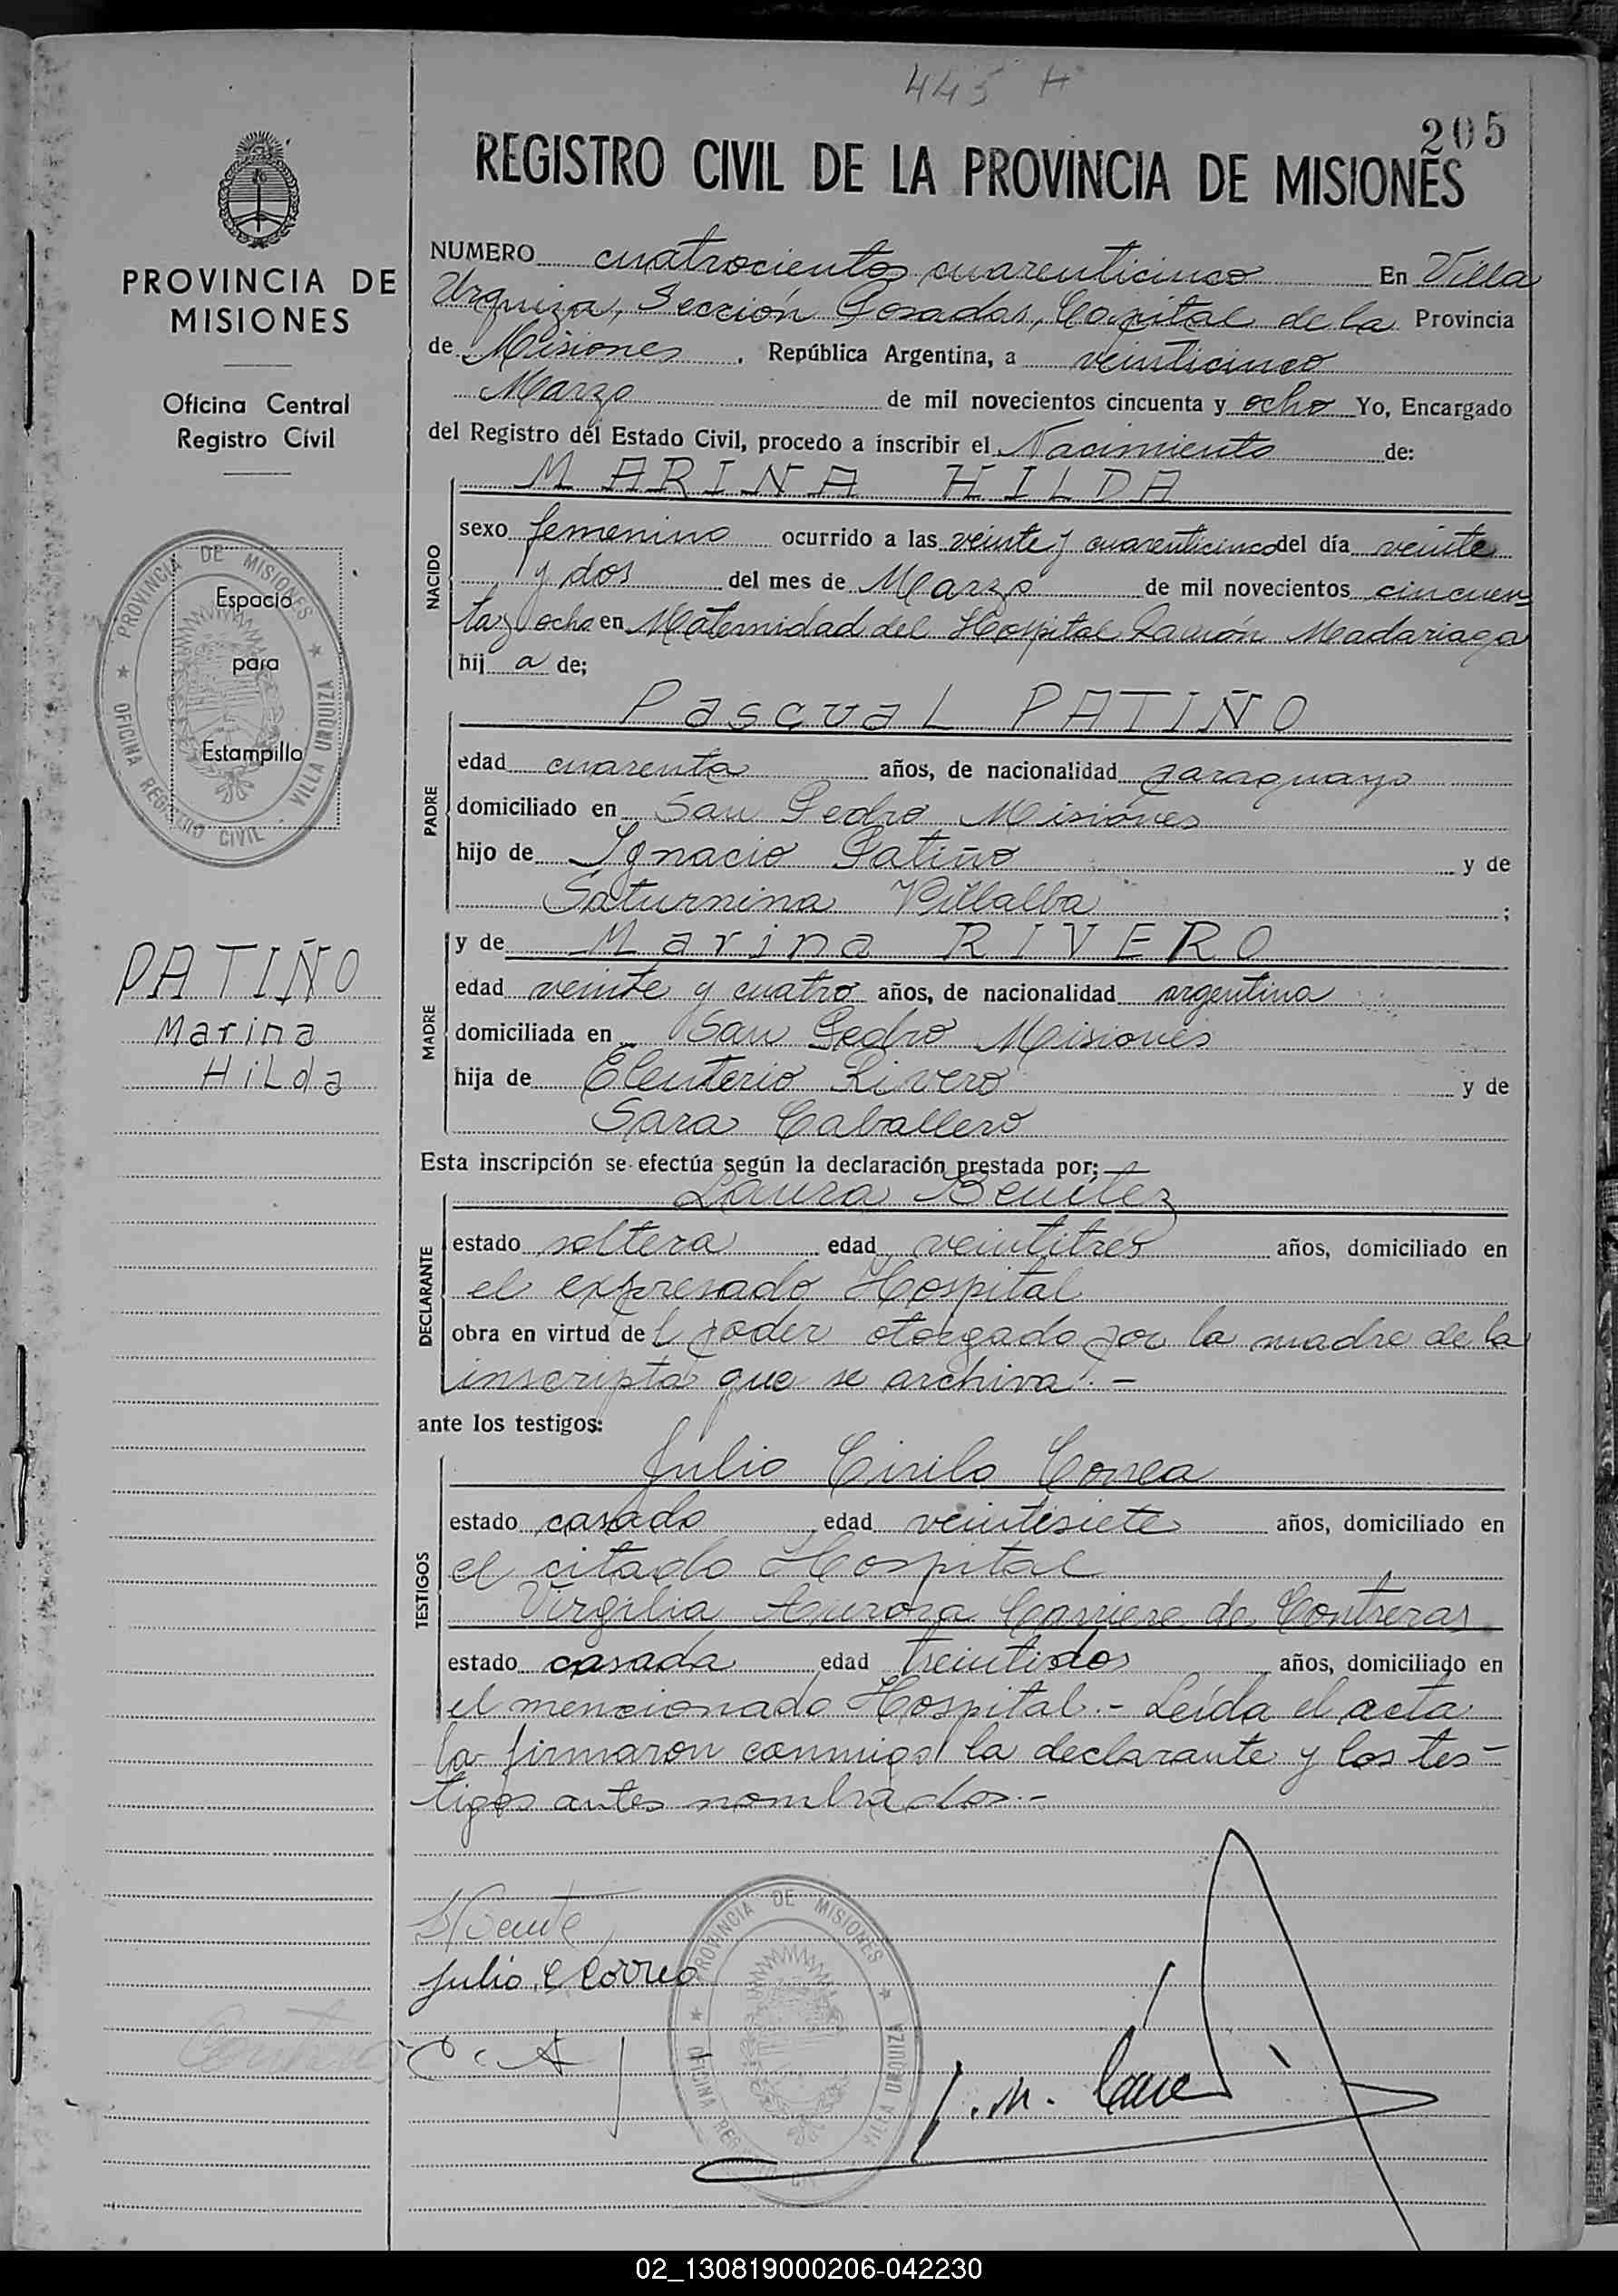 445 H
205
REGISTRO CIVIL DE LA PROVINCIA DE MISIONES
PROVINCIA DE
MISIONES
Oficina Central
Registro Civil
PROVINCIA DE MISIONES
OFICINA REGISTRO CIVIL VILLA URQUIZA
Espacio
para
Estampilla
PATIÑO
Marina
Hilda
NUMERO cuatrocientos cuarenticinco En Villa
Urquiza, Sección Posadas, Capital de la Provincia
de Misiones, República Argentina, a veinticinco
Marzo de mil novecientos cincuenta y ocho Yo, Encargado
del Registro del Estado Civil, procedo a inscribir el Nacimiento de:
NACIDO
MARINA HILDA
sexo femenino ocurrido a las veinte y cuarenticinco del día veinte
y dos del mes de Marzo de mil novecientos cincuen-
ta y ocho en Maternidad del Hospital Ramón Madariaga
hija de;
PADRE
Pascual PATIÑO
edad cuarenta años, de nacionalidad paraguayo
domiciliado en San Pedro Misiones
hijo de Ignacio Patiño y de
Saturnina Villalba ;
MADRE
y de Marina RIVERO
edad veinte y cuatro años, de nacionalidad argentina
domiciliada en San Pedro Misiones
hija de Eleuterio Rivero y de
Sara Caballero
Esta inscripción se efectúa según la declaración prestada por;—
DECLARANTE
Laura Benítez
estado soltera edad veintitrés años, domiciliado en
el expresado Hospital
obra en virtud del poder otorgado por la madre de la
inscripta que se archiva.-
ante los testigos:
TESTIGOS
Julio Cirilo Correa
estado casado edad veintisiete años, domiciliado en
el citado Hospital
Virgilia Aurora Carriere de Contreras
estado casada edad treintidos años, domiciliado en
el mencionado Hospital.- Leída el acta
la firmaron conmigo la declarante y los tes-
tigos antes nombrados.-
Julio C Correa
PROVINCIA DE MISIONES
OFICINA REGISTRO CIVIL VILLA URQUIZA
02_130819000206-042230